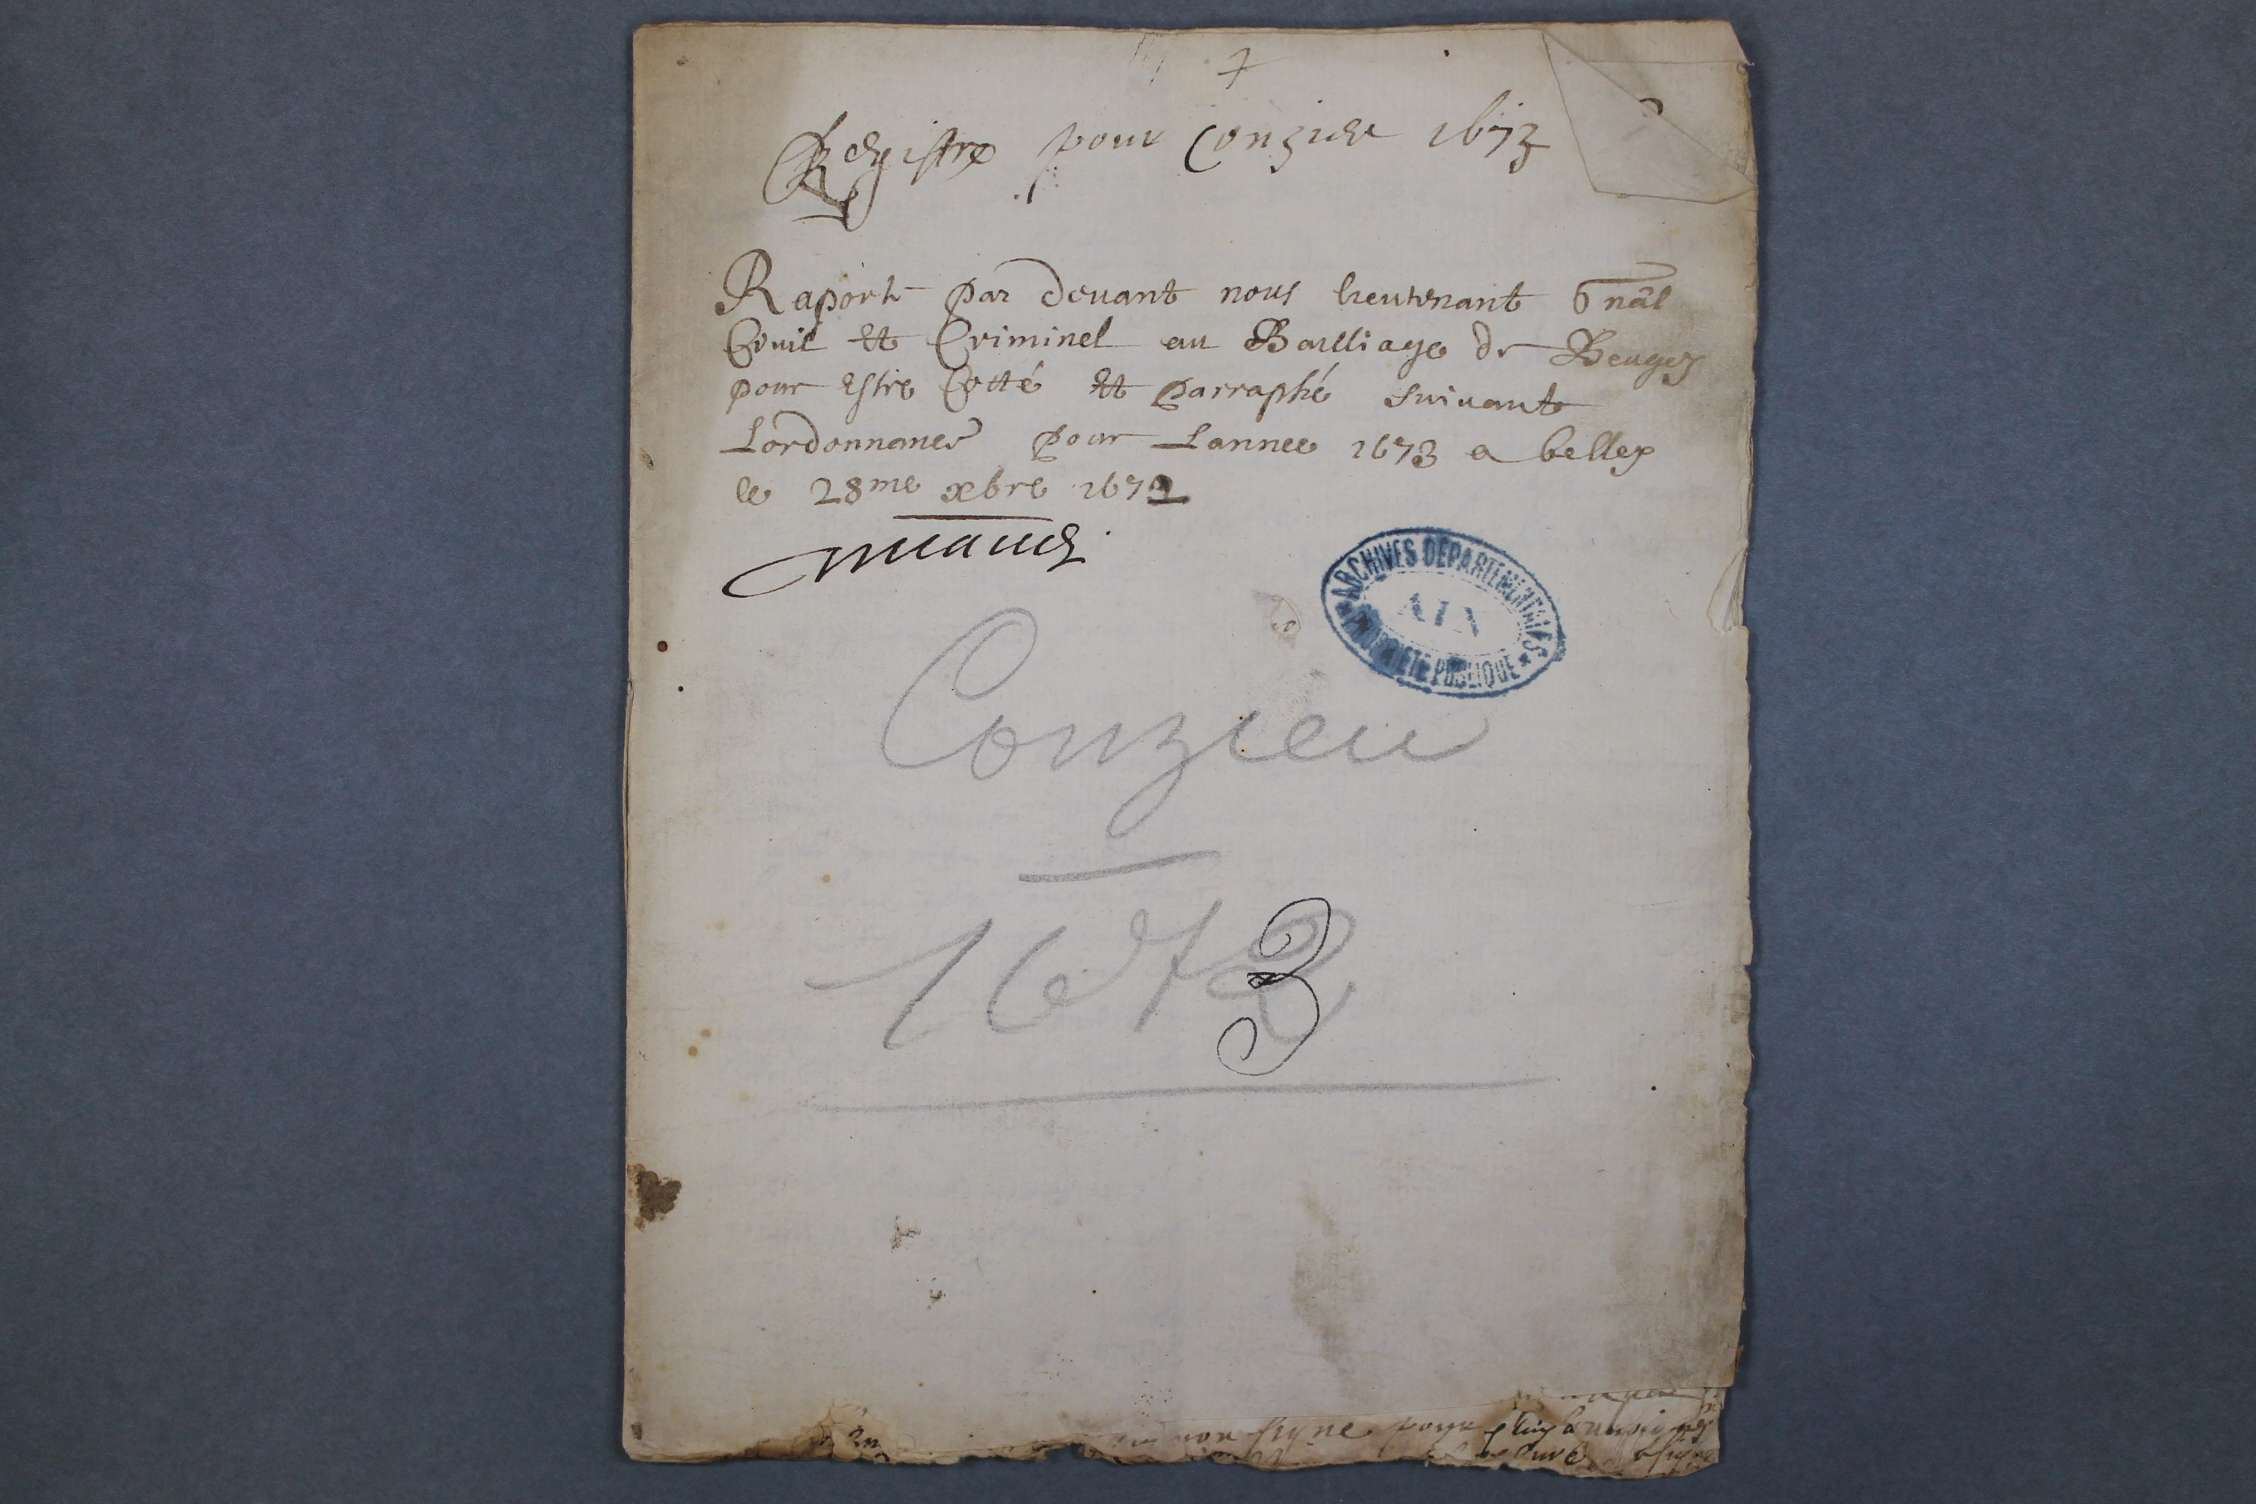 7
Registre pour Conzieu 1673
Raport par devant nous lieutenant gnãl
Civil et Criminel au Bailliage de Beugey
pour estre Cotté et parraphé suivant
Lordonnance pour Lannee 1673 a belley
le 28me xbre 1672
ARCHIVES DÉPARTEMENTALES
AIN
PROPRIÉTÉ PUBLIQUE
Conzieu
1673
non signe pour